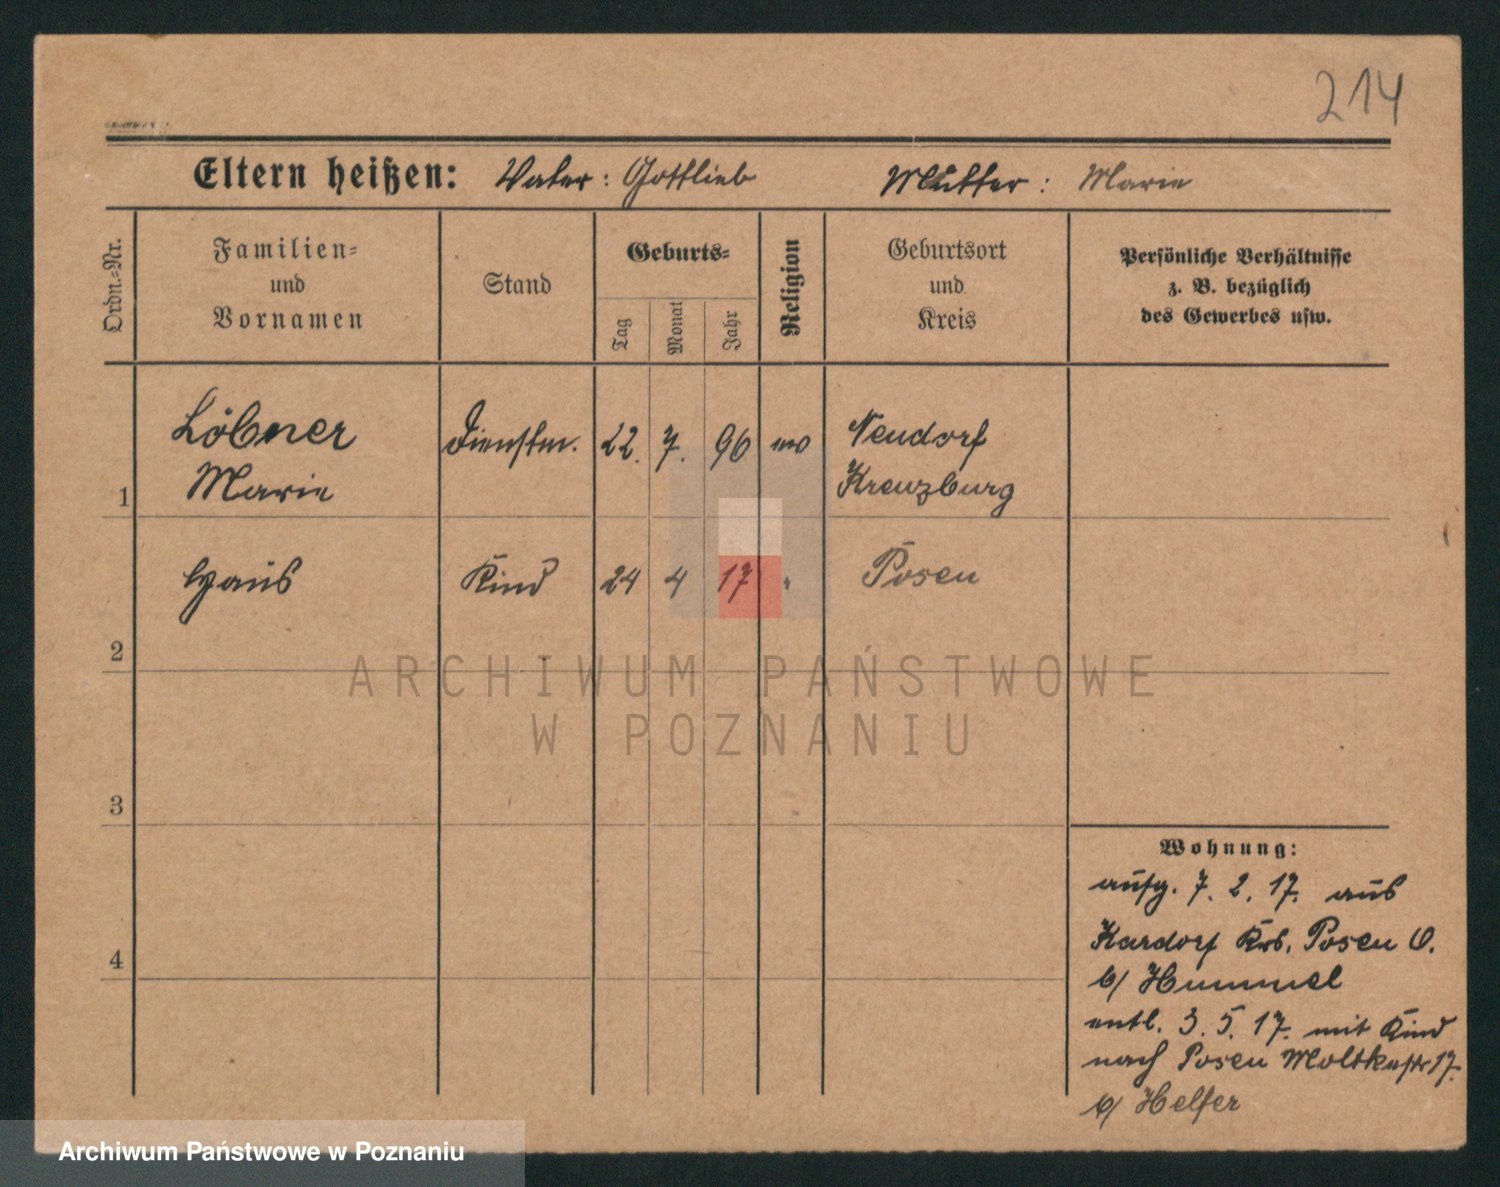 214
Eltern heißen: Vater: Gottlieb Mutter: Marie
Ordn.-Nr.
Familien-
und
Vornamen
Stand
Geburts-
Tag
Monat
Jahr
Religion
Geburtsort
und
Kreis
Persönliche Verhältnisse
z. B. bezüglich
des Gewerbes usw.
1
Löbner
Marie
Dienstm. 22. 7. 96 ev
Neudorf
Kreuzburg
2
Hans Kind 24 4 17 " Posen
ARCHIWUM PAŃSTWOWE
W POZNANIU
3
4
Wohnung:
aufg. 7. 2. 17. aus
Kardorf Krs. Posen O.
b/ Hummel
entl. 3. 5. 17. mit Kind
nach Posen Moltkestr 17.
b/ Helfer
Archiwum Państwowe w Poznaniu